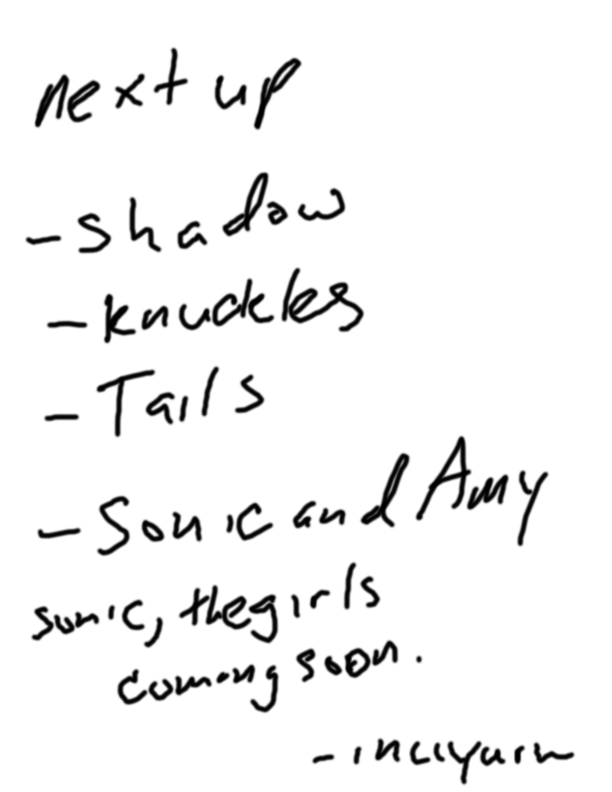 next up
- Shadow
- Knuckles
- Tails
- Sonic and Amy
sonic, the girls
coming soon.